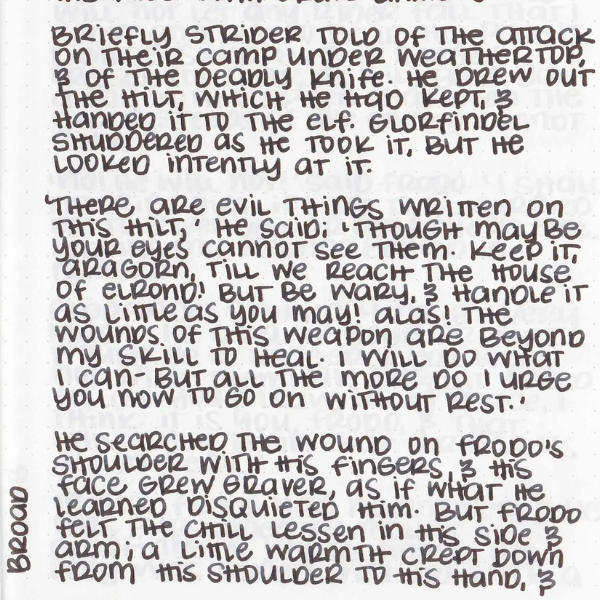 BRIEFLY STRIDER TOLD OF THE ATTACK
ON THEIR CAMP UNDER WEATHERTOP,
& OF THE DEADLY KNIFE. HE DREW OUT
THE HILT, WHICH HE HAD KEPT, &
HANDED IT TO THE ELF. GLORFINDEL
SHUDDERED AS HE TOOK IT, BUT HE
LOOKED INTENTLY AT IT.
'THERE ARE EVIL THINGS WRITTEN ON
THIS HILT,' HE SAID; 'THOUGH MAYBE
YOUR EYES CANNOT SEE THEM. KEEP IT,
ARAGORN, TILL WE REACH THE HOUSE
OF ELROND! BUT BE WARY, & HANDLE IT
AS LITTLE AS YOU MAY! ALAS! THE
WOUNDS OF THIS WEAPON ARE BEYOND
MY SKILL TO HEAL. I WILL DO WHAT
I CAN- BUT ALL THE MORE DO I URGE
YOU NOW TO GO ON WITHOUT REST.'
HE SEARCHED THE WOUND ON FRODO'S
SHOULDER WITH HIS FINGERS, & HIS
FACE GREW GRAVER, AS IF WHAT HE
LEARNED DISQUIETED HIM. BUT FRODO
FELT THE CHILL LESSEN IN HIS SIDE &
ARM; A LITTLE WARMTH CREPT DOWN
FROM HIS SHOULDER TO HIS HAND, &
BROAD